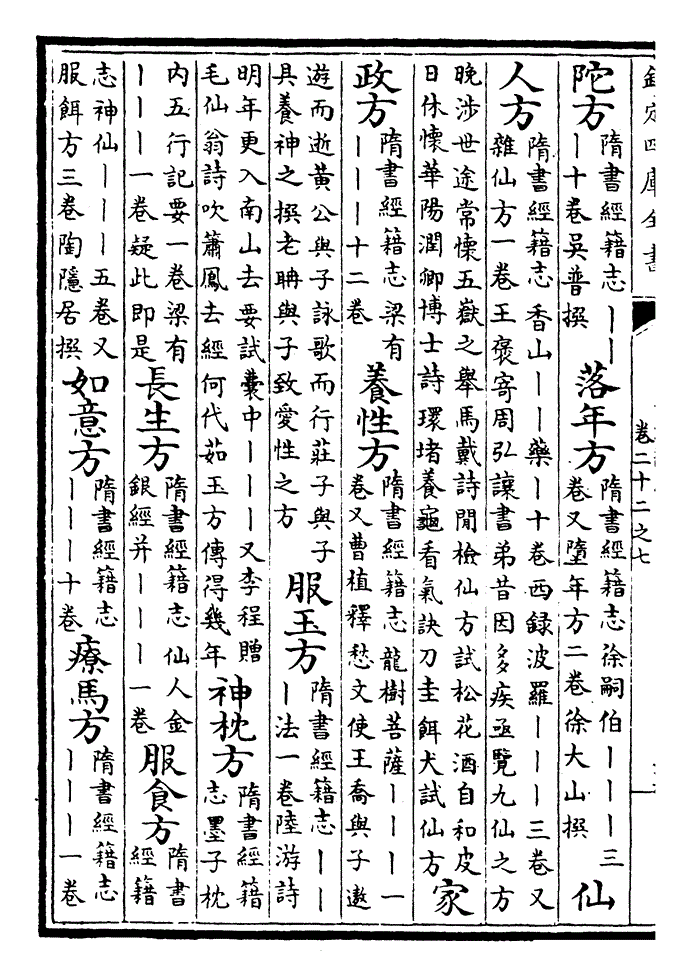 欽定四庫全書
卷二十二之七
陀方隋書經籍志丨丨丨十卷吳普撰落年方隋書經籍志徐嗣伯丨丨丨三卷又墮年方二卷徐大山撰仙
人方隋書經籍志香山丨丨藥丨十卷西録波羅丨丨丨三卷又雜仙方一卷王褒寄周弘讓書弟昔因多疾亟覽九仙之方
晚涉世途常懷五嶽之舉馬戴詩閒檢仙方試松花酒自和皮日休懷華陽潤卿博士詩環堵養龜看氣訣刀圭餌犬試仙方家
政方隋書經籍志梁有丨丨丨十二卷養性方隋書經籍志龍樹菩薩丨丨丨一卷又曹植釋愁文使王喬與子遨
遊而逝黃公與子詠歌而行莊子與子具養神之撰老聃與子致愛性之方服玉方隋書經籍志丨丨丨法一卷陸游詩
明年更入南山去要試囊中丨丨丨又李程贈毛仙翁詩吹簫鳳去經何代茹玉方傳得幾年神枕方隋書經籍志墨子枕
内五行記要一卷梁有丨丨丨一卷疑此即是長生方隋書經籍志仙人金銀經并丨丨丨一卷服食方隋書經籍
志神仙丨丨丨五卷又服餌方三卷陶隱居撰如意方隋書經籍志丨丨丨十卷療馬方隋書經籍志丨丨丨一卷